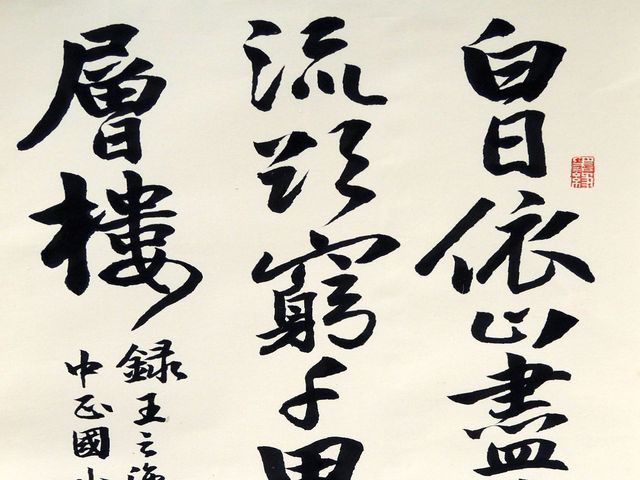 白日依山盡
流欲窮千里
層樓
録王之渙
中正國